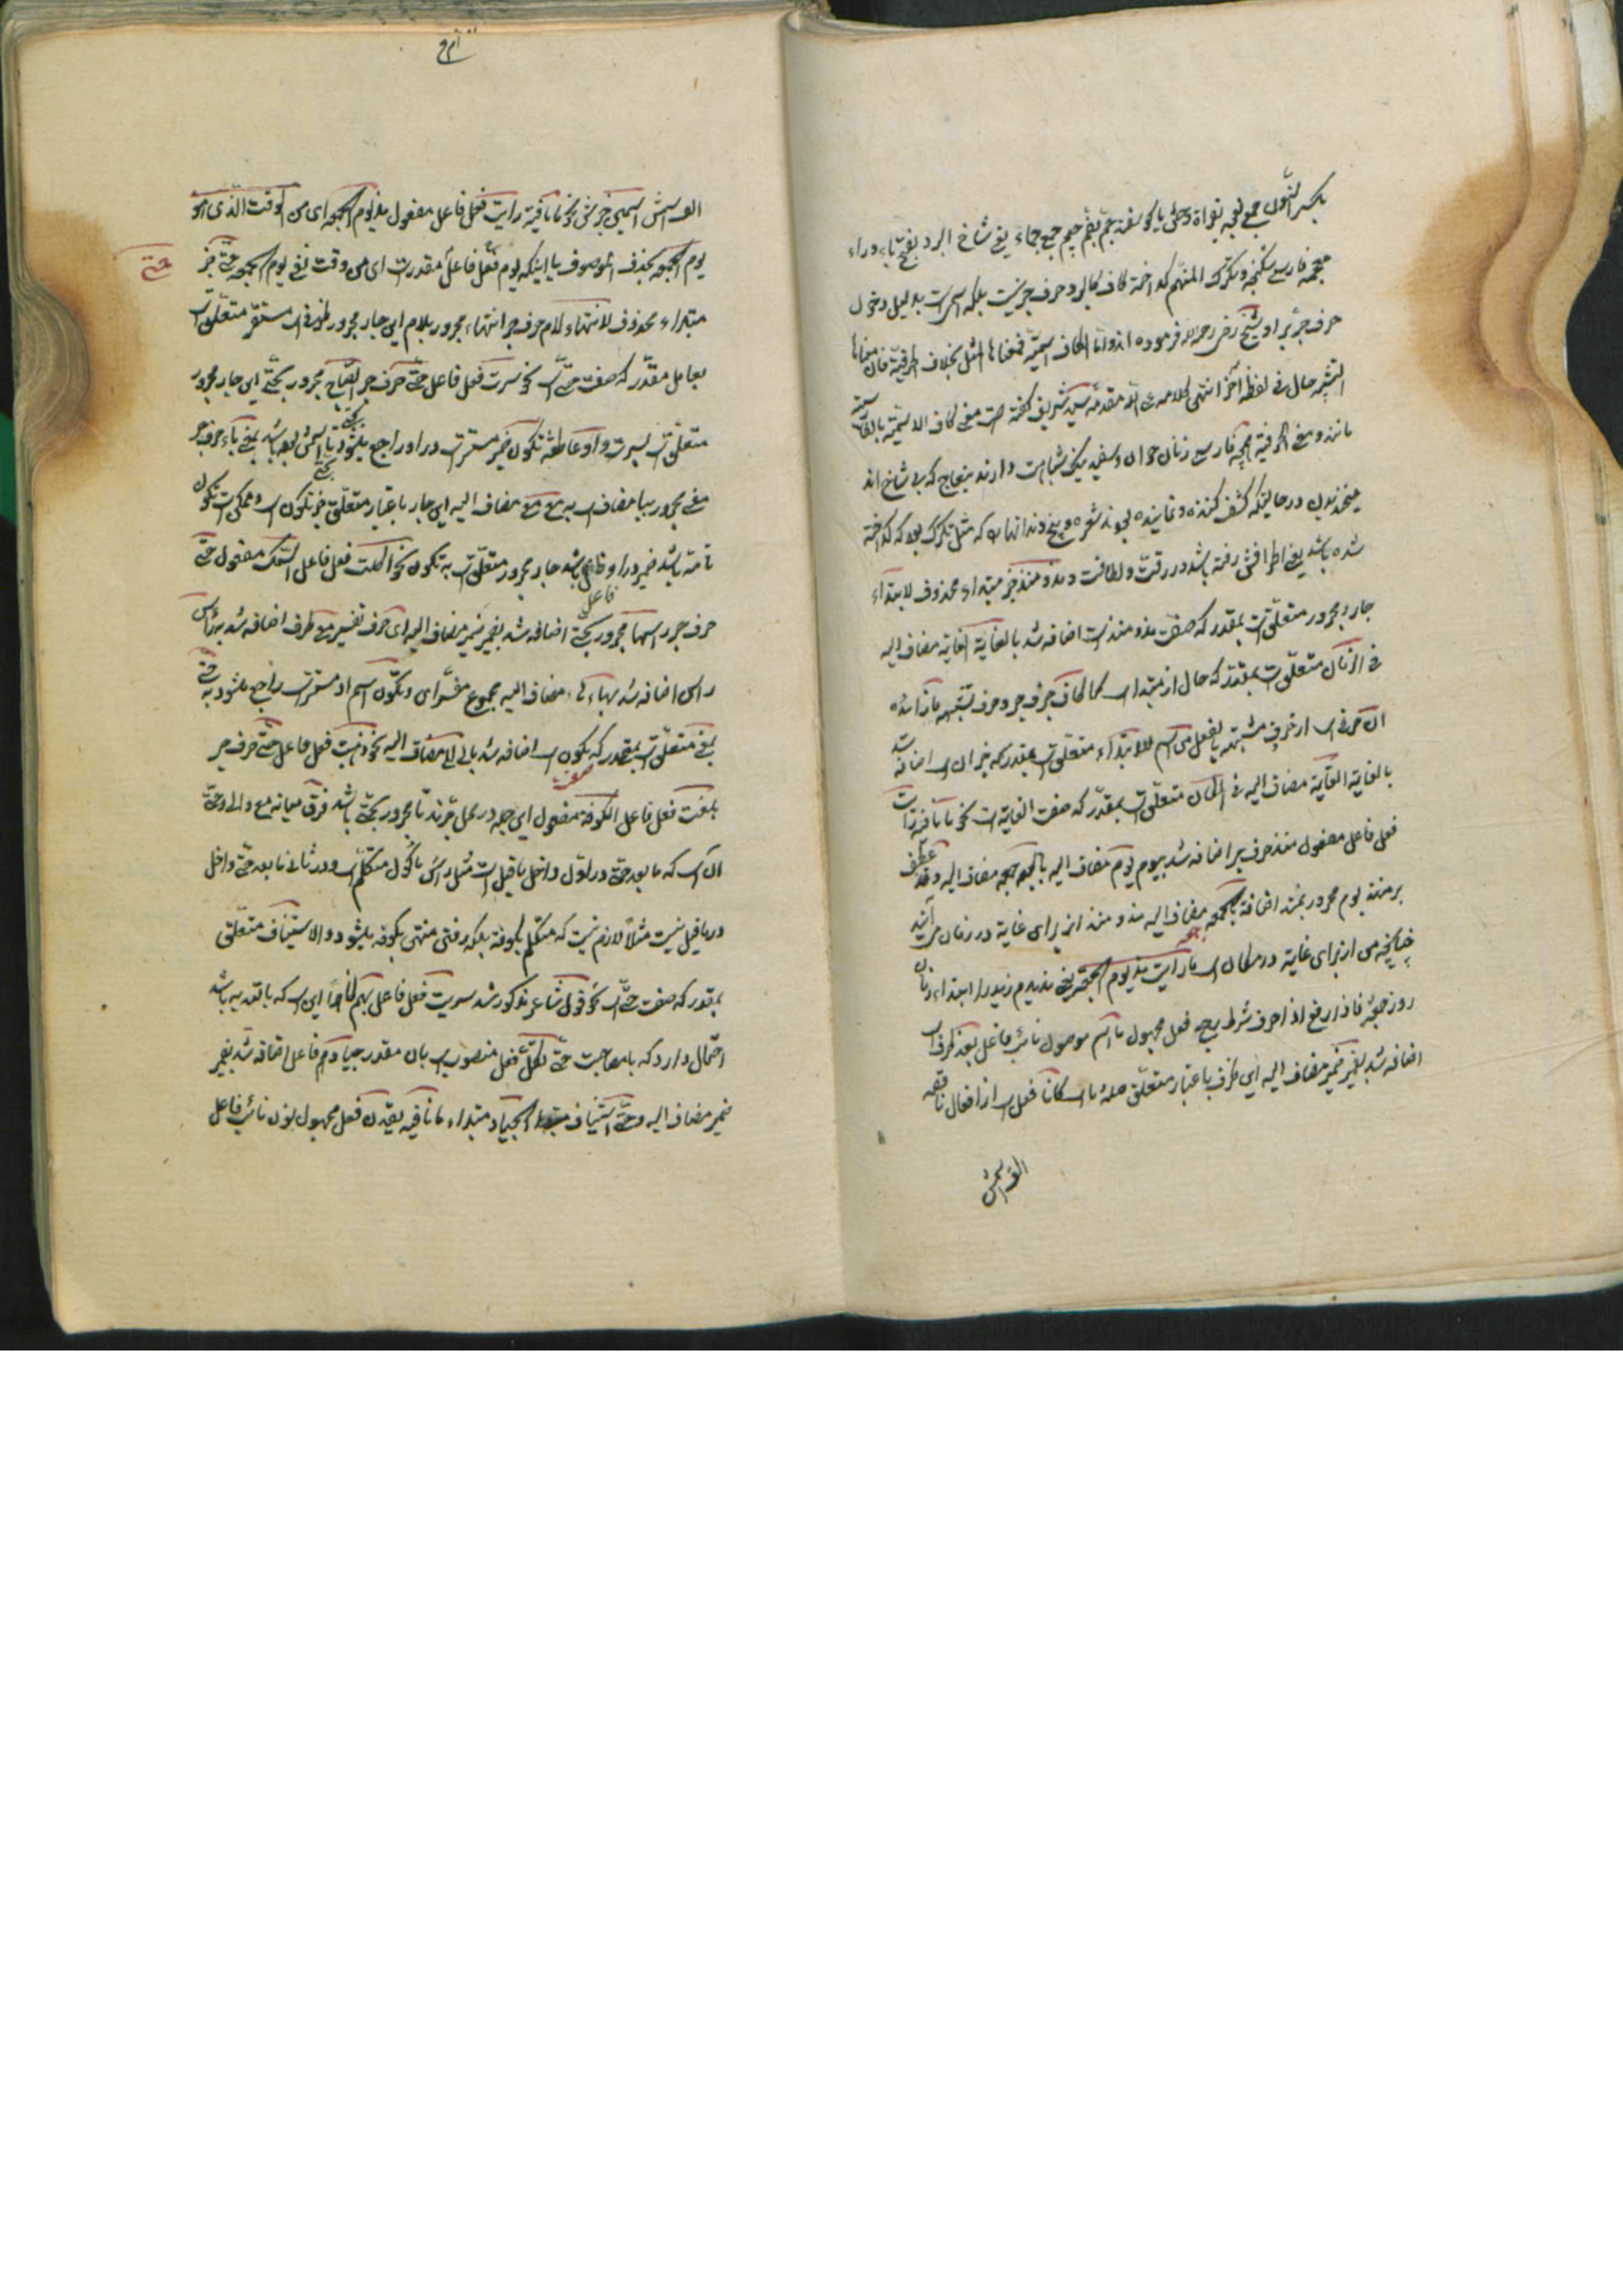 بکسر النون جمع نعجه بنواة وحشی یا کوسفند جم بضم جیم جمع جماء یعنی شاخ البرد بفتح باء وراء
معجمه فارسی شکنجه و تکرک المنهم کداخته کاف کالبرد حرف جر نیست بلکه اسم است بدلیل دخول
حرف جر بر او شیخ رضی رحمه الله فرموده اند واما الکاف اسمیة فمعناها المثل بخلاف الحرفیة فان معناها
التشبیه حال فی لفظ آخر انتهی کلامه مقدمه سید شریف کفته است معنی کاف الاسمیة بالفارسیة
مانند و معنی الحرفیة همچه فارسی زنان جوان و سفید نیک شباهت دارند بنعاج که بی شاخ اند
میخندیدن در حالتیکه کشف کننده و نماینده بودند ثغره و بیخ دندانها را که مثل تکرک بود که کداخته
شده باشد یعنی اطرافش رفته باشد در رقت و لطافت و مذ و منذ خبر مبتداء محذوف لابتداء
جار و مجرور متعلق است بمقدر که صفت مذ و منذ است اضافه شد بالغایة الغایة مضاف الیه
فی الزمان متعلق است بمقدر که حال از مبتدا است کما کاف حرف جر و حرف تشبیه ما زائده
ان حرفی است از حروف مشبهه بالفعل من اسم للابتداء متعلق است بمقدر که خبر ان است اضافه شد
بالغایة الغایة مضاف الیه فی المکان متعلق است بمقدر که صفت الغایة است نحو ما نافیة رایت
فعل فاعل مفعول منذ حرف جر اضافه شد بیوم یوم مضاف الیه بالجمعه جمعه مضاف الیه و قد عطف
بر منذ یوم مجرور بمنذ اضافة بالجمعه مضاف الیه مذ و منذ از برای غایة در زمان می آیند
چنانچه من از برای غایة در مکان است ما رایت مذ یوم الجمعه یعنی ندیدم زید را ابتداء زمان
روز جمعه فاذا رفع اذا حرف شرط رفع فعل مجهول ما اسم موصول نائب فاعل بعد ظرف است
اضافه شد بضمیر ضمیر مضاف الیه این ظرف باعتبار متعلق صله ما است کانا فعل است از افعال ناقصه
الف اسمش
الف اسمش اسمین خبرش نحو ما نافیة رایت فعل فاعل مفعول مذ یوم الجمعه ای من الوقت الذی هو
یوم الجمعه بحذف الموصوف یا اینکه یوم فعل فاعل مقدر است ای من وقت نفی یوم الجمعه حتی خبر
حتی
مبتداء محذوف للانتهاء لام حرف جر انتهاء مجرور بلام این جار مجرور ظرف است مستقر متعلق است
بعامل مقدر که صفت حتی است نحو سرت فعل فاعل حتی حرف جر الصباح مجرور بحتی این جار مجرور
متعلق است بسرت و او عاطفه تکون ضمیر مستتر است در او راجع میشود بحتی اسمش بوده باشد بمعنی باء حرف جر
معنی مجرور ببا مضاف است به مع مع مضاف الیه این جار باعتبار متعلق خبر تکون است و ممکن است تکون
تامه باشد ضمیر در او فاعل باشد جار مجرور متعلق است به تکون نحو اکلت فعل فاعل السمک مفعول حتی
حرف جر راسها مجرور بحتی اضافه شد بضمیر ضمیر مضاف الیه ای حرف تفسیر مع ظرف اضافه شد به راس
راس اضافه شد بهاء ها مضاف الیه مجموع مفسر ای و تکون اسم او مستتر است راجع میشود به حتی
بمعنی متعلق است بمقدر که تکون است اضافه شد بالی الی مضاف الیه نحو ذهبت فعل فاعل حتی حرف جر
بلغت فعل فاعل الکوفة مفعول این جمله در محل جرند تا مجرور بحتی باشد فرق میانه مع والی و حتی
آن است که ما بعد حتی در اول داخل ما قبل است مثل راس ماکول متکلم است و در ثانی ما بعد حتی داخل
در ما قبل نیست مثلا لازم نیست که متکلم بکوفه بلکه رفتن منتهی بکوفه میشود و الاستیناف متعلق
بمقدر که صفت حتی است نحو قول شاعر مذکور شد سریت فعل فاعل بهم
احتمال دارد که با مصاحبت حتی تکل فعل منصوب است بان مقدر جیادهم فاعل اضافه شد بضمیر
ضمیر مضاف الیه و حتی استیناف الجیاد مبتداء ما نافیه یقدن فعل مجهول نون نائب فاعل